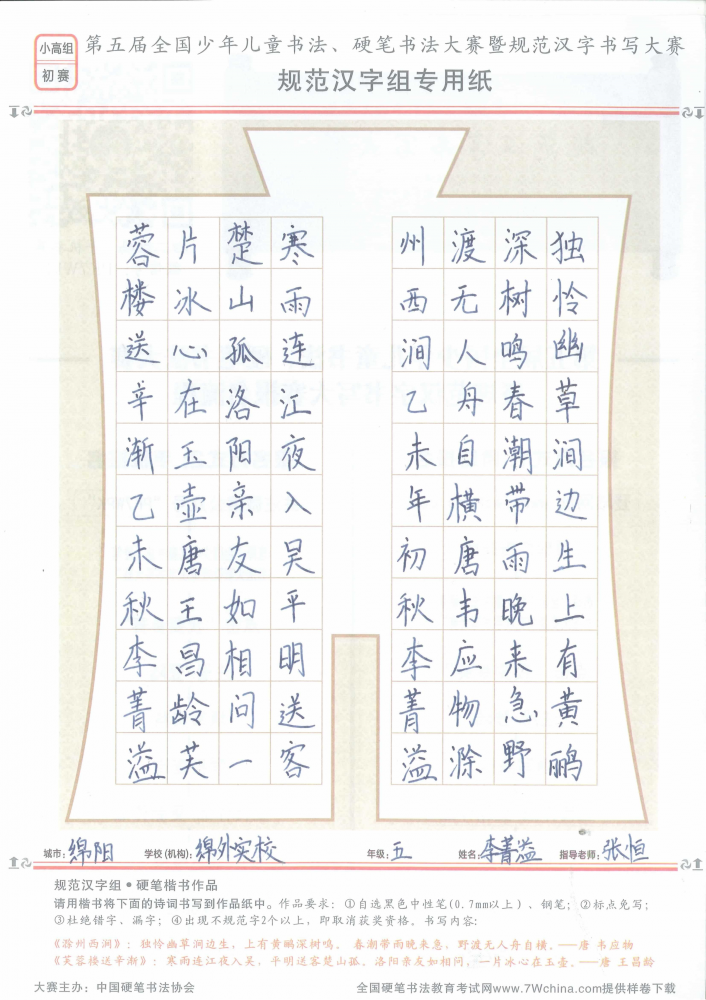 小高组
初赛
第五届全国少年儿童书法、硬笔书法大赛暨规范汉字书写大赛
规范汉字组专用纸
独怜幽草涧边生上有黄鹂
深树鸣春潮带雨晚来急野
渡无人舟自横唐韦应物滁
州西涧乙未年初秋李菁溢
寒雨连江夜入吴平明送客
楚山孤洛阳亲友如相问一
片冰心在玉壶唐王昌龄芙
蓉楼送辛渐乙未秋李菁溢
城市：绵阳 学校(机构)：绵外实校 年级：五 姓名：李菁溢 指导老师：张恒
规范汉字组•硬笔楷书作品
请用楷书将下面的诗词书写到作品纸中。作品要求：①自选黑色中性笔(0.7mm以上)、钢笔；②标点免写；
③杜绝错字、漏字；④出现不规范字2个以上，即取消获奖资格。书写内容：
《滁州西涧》：独怜幽草涧边生，上有黄鹂深树鸣。 春潮带雨晚来急，野渡无人舟自横。——唐 韦应物
《芙蓉楼送辛渐》：寒雨连江夜入吴，平明送客楚山孤。洛阳亲友如相问，一片冰心在玉壶。——唐 王昌龄
大赛主办：中国硬笔书法协会 全国硬笔书法教育考试网www.7Wchina.com提供样卷下载